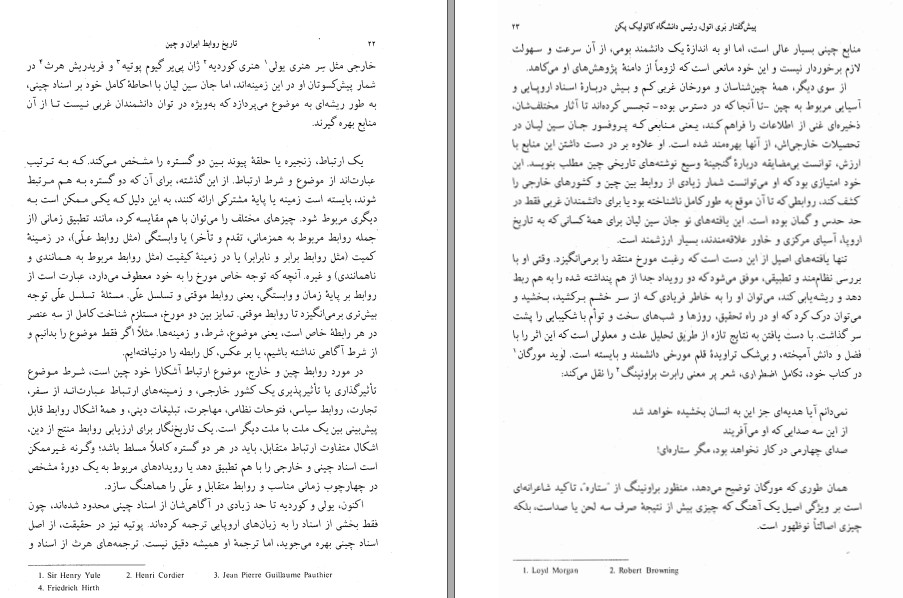 تاریخ روابط ایران و چین ۲۲
خارجی مثل سِر هنری یولی۱ هنری کوردیه۲ ژان پی‌یر گیوم پوتیه۳ و فریدریش هرث۴ در
شمار پیش‌کسوتان او در این زمینه‌اند، اما جان سین لیان با احاطهٔ کامل خود بر اسناد چینی،
به طور ریشه‌ای به موضوع می‌پردازد که به‌ویژه در توان دانشمندان غربی نیست تا از آن
منابع بهره گیرند.
یک ارتباط، زنجیره یا حلقهٔ پیوند بین دو گستره را مشخص می‌کند. که به ترتیب
عبارت‌اند از موضوع و شرط ارتباط. از این گذشته، برای آن که دو گستره به هم مرتبط
شوند، بایسته است زمینه یا پایهٔ مشترکی ارائه کنند، به این دلیل که یکی ممکن است به
دیگری مربوط شود. چیزهای مختلف را می‌توان با هم مقایسه کرد، مانند تطبیق زمانی (از
جمله روابط مربوط به همزمانی، تقدم و تأخر) یا وابستگی (مثل روابط علّی)، در زمینهٔ
کمیت (مثل روابط برابر و نابرابر) یا در زمینهٔ کیفیت (مثل روابط مربوط به همانندی و
ناهمانندی) و غیره. آنچه که توجه خاص مورخ را به خود معطوف می‌دارد، عبارت است از
روابط بر پایهٔ زمان و وابستگی، یعنی روابط موقتی و تسلسل علّی. مسئلهٔ تسلسل علّی توجه
بیش‌تری برمی‌انگیزد تا روابط موقتی. تمایز بین دو مورخ، مستلزم شناخت کامل از سه عنصر
در هر رابطهٔ خاص است، یعنی موضوع، شرط، و زمینه‌ها. مثلاً اگر فقط موضوع را بدانیم و
از شرط آگاهی نداشته باشیم، یا بر عکس، کل رابطه را درنیافته‌ایم.
در مورد روابط چین و خارج، موضوع ارتباط آشکارا خود چین است، شرط موضوع
تأثیرگذاری یا تأثیرپذیری یک کشور خارجی، و زمینه‌های ارتباط عبارت‌اند از سفر،
تجارت، روابط سیاسی، فتوحات نظامی، مهاجرت، تبلیغات دینی، و همهٔ اشکال روابط قابل
پیش‌بینی بین یک ملت با ملت دیگر است. یک تاریخ‌نگار برای ارزیابی روابط منتج از دین،
اشکال متفاوت ارتباط متقابل، باید در هر دو گستره کاملاً مسلط باشد؛ وگرنه غیرممکن
است اسناد چینی و خارجی را با هم تطبیق دهد یا رویدادهای مربوط به یک دورهٔ مشخص
در چهارچوب زمانی مناسب و روابط متقابل و علّی را هماهنگ سازد.
اکنون، یولی و کوردیه تا حد زیادی در آگاهی‌شان از اسناد چینی محدود شده‌اند، چون
فقط بخشی از اسناد را به زبان‌های اروپایی ترجمه کرده‌اند. پوتیه نیز در حقیقت، از اصل
اسناد چینی بهره می‌جوید، اما ترجمهٔ او همیشه دقیق نیست. ترجمه‌های هرث از اسناد و
1. Sir Henry Yule 2. Henri Cordier 3. Jean Pierre Guillaume Pauthier
4. Friedrich Hirth
پیش‌گفتار بَری اتول، رئیس دانشگاه کاتولیک پکن ۲۳
منابع چینی بسیار عالی است، اما او به اندازهٔ یک دانشمند بومی، از آن سرعت و سهولت
لازم برخوردار نیست و این خود مانعی است که لزوماً از دامنهٔ پژوهش‌های او می‌کاهد.
از سوی دیگر، همهٔ چین‌شناسان و مورخان غربی کم و بیش دربارهٔ اسناد اروپایی و
آسیایی مربوط به چین -تا آنجا که در دسترس بوده- تجسس کرده‌اند تا آثار مختلف‌شان،
ذخیره‌ای غنی از اطلاعات را فراهم کند، یعنی منابعی که پروفسور جان سین لیان در
تحصیلات خارجی‌اش، از آنها بهره‌مند شده است. او علاوه بر در دست داشتن این منابع با
ارزش، توانست بی‌مضایقه دربارهٔ گنجینهٔ وسیع نوشته‌های تاریخی چین مطلب بنویسد. این
خود امتیازی بود که او می‌توانست شمار زیادی از روابط بین چین و کشورهای خارجی را
کشف کند، روابطی که تا آن موقع به طور کامل ناشناخته بود یا برای دانشمندان غربی فقط در
حد حدس و گمان بوده است. این یافته‌های نو جان سین لیان برای همهٔ کسانی که به تاریخ
اروپا، آسیای مرکزی و خاور علاقه‌مندند، بسیار ارزشمند است.
تنها یافته‌های اصیل از این دست است که رغبت مورخ منتقد را برمی‌انگیزد. وقتی او با
بررسی نظام‌مند و تطبیقی، موفق می‌شود که دو رویداد جدا از هم پنداشته شده را به هم ربط
دهد و ریشه‌یابی کند، می‌توان او را به خاطر فریادی که از سر خشم برکشید، بخشید و
می‌توان درک کرد که او در راه تحقیق، روزها و شب‌های سخت و توأم با شکیبایی را پشت
سر گذاشت. با دست یافتن به نتایج تازه از طریق تحلیل علت و معلولی است که این اثر را با
فضل و دانش آمیخته، و بی‌شک تراویدهٔ قلم مورخی دانشمند و بایسته است. لوید مورگان۱
در کتاب خود، تکامل اضطراری، شعر پر معنی رابرت براونینگ۲ را نقل می‌کند:
نمی‌دانم آیا هدیه‌ای جز این به انسان بخشیده خواهد شد
از این سه صدایی که او می‌آفریند
صدای چهارمی در کار نخواهد بود، مگر ستاره‌ای!
همان طوری که مورگان توضیح می‌دهد، منظور براونینگ از "ستاره"، تاکید شاعرانه‌ای
است بر ویژگی اصیل یک آهنگ که چیزی بیش از نتیجهٔ صرف سه لحن یا صداست، بلکه
چیزی اصالتاً نوظهور است.
1. Loyd Morgan 2. Robert Browning